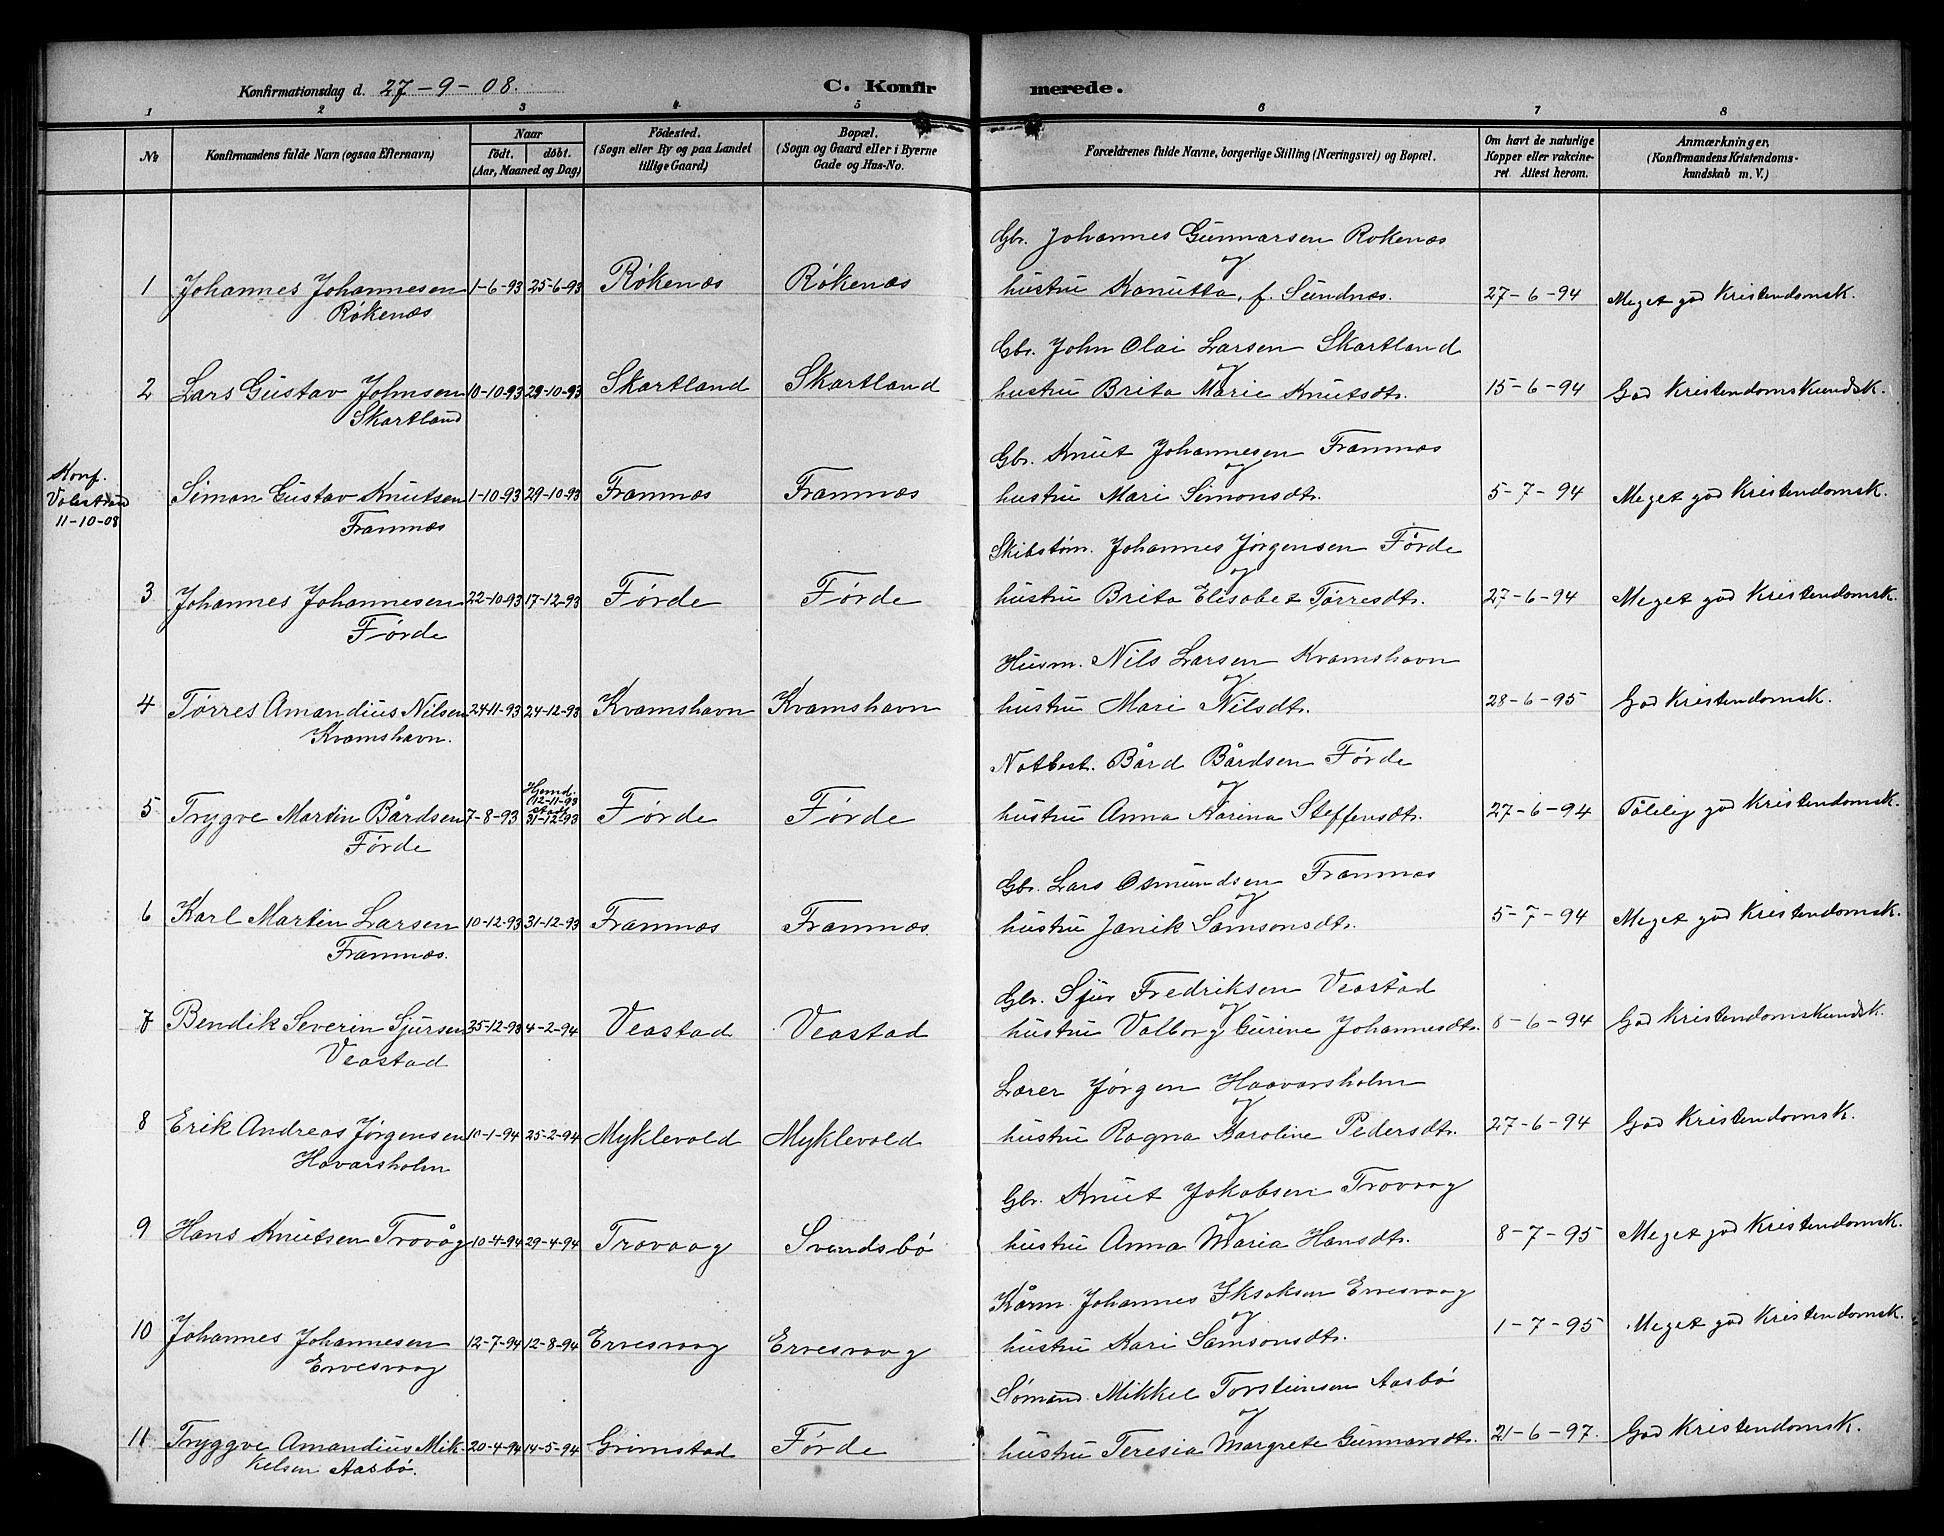 Konfirmationsdag d. 27-9-08.
C. Konfirmerede.
1 2 3 4 5 6 7 8
№ Konfirmandens fulde Navn (ogsaa Efternavn) Naar født. døbt. (Aar, Maaned og Dag) Fødested. (Sogn eller By og paa Landet tillige Gaard) Bopæl. (Sogn og Gaard eller i Byerne Gade og Hus-No. Forældrenes fulde Navne, borgerlige Stilling (Næringsvei) og Bopæl. Om havt de naturlige Kopper eller vakcineret Attest herom. Anmærkninger. (Konfirmandens Kristendomskundskab m. V.)
Gbr. Johannes Gunnarsen Rokenæs
og
1 Johannes Johannesen 1-6-93 25-6-93 Røkenæs Røkenæs hustru Knutta, f. Sundnæs. 27-6-94 Meget god Kristendomsk.
Røkenæs
Gbr. John Olai Larsen Skartland
og
2 Lars Gustav Johnsen 10-10-93 29-10-93 Skartland Skartland hustru Brita Marie Knutsdtr. 15-6-94 God Kristendomskundsk.
Skartland
Gbr. Knut Johannesen Framnæs
og
Konf.
Valestrand
11-10-08
Simon Gustav Knutsen 1-10-93 29-10-93 Framnæs Framnæs hustru Mari Simonsdtr. 5-7-94 Meget god Kristendomsk.
Framnæs
Skibstøm. Johannes Jørgensen Førde
og
3 Johannes Johannesen 22-10-93 17-12-93 Førde Førde hustru Brita Elisabet Tørresdtr. 27-6-94 Meget god Kristendomsk.
Førde
Husm. Nils Larsen Kvamshavn
og
4 Tørres Amandius Nilsen 24-11-93 24-12-93 Kvamshavn Kvamshavn hustru Mari Nilsdtr. 28-6-95 God Kristendomsk.
Kvamshavn.
Notbest. Bård Bårdsen Førde
og
5 Trygve Martin Bårdsen 7-8-93 Hjemd. (12-11-93 stadf. 31-12-93 Førde Førde hustru Anna Karina Steffensdtr. 27-6-94 Tålelig god Kristendomsk.
Førde
Gbr. Lars Osmundsen Framnæs
og
6 Karl Martin Larsen 10-12-93 31-12-93 Framnæs Framnæs. hustru Janik Samsonsdtr. 5-7-94 Meget god Kristendomsk.
Framnæs.
Gbr. Sjur Fredriksen Veastad
og
7 Bendik Severin Sjursen 25-12-93 4-2-94 Veastad Veastad hustru Valborg Gurine Johannesdtr. 8-6-94 God Kristendomskundsk.
Veastad
Lærer Jørgen Haavarsholm
og
8 Erik Andreas Jørgensen 10-1-94 25-2-94 Myklevold Myklevold hustru Ragna Karoline Pedersdtr. 27-6-94 God Kristendomsk.
Havarsholm
Gbr. Knut Jakobsen Trovaag
og
9 Hans Knutsen Trovåg 10-4-94 29-4-94 Trovaag Svendsbø hustru Anna Maria Hansdtr. 8-7-95 Meget god Kristendomsk.
Kårm. Johannes Iksaksen Ervesvaag
og
10 Johannes Johannesen 12-7-94 12-8-94 Ervesvaag Ervesvaag hustru Kari Samsonsdtr. 1-7-95 Meget god Kristendomsk.
Ervesvaag
Sømand Mikkel Torsteinsen Aasbø
og
11 Tryggve Amandius Mik- 20-4-94 14-5-94 Grimstad Førde hustru Teresia Margrete Gunnarsdtr. 21-6-97. God Kristendomsk.
kelsen Aasbø.